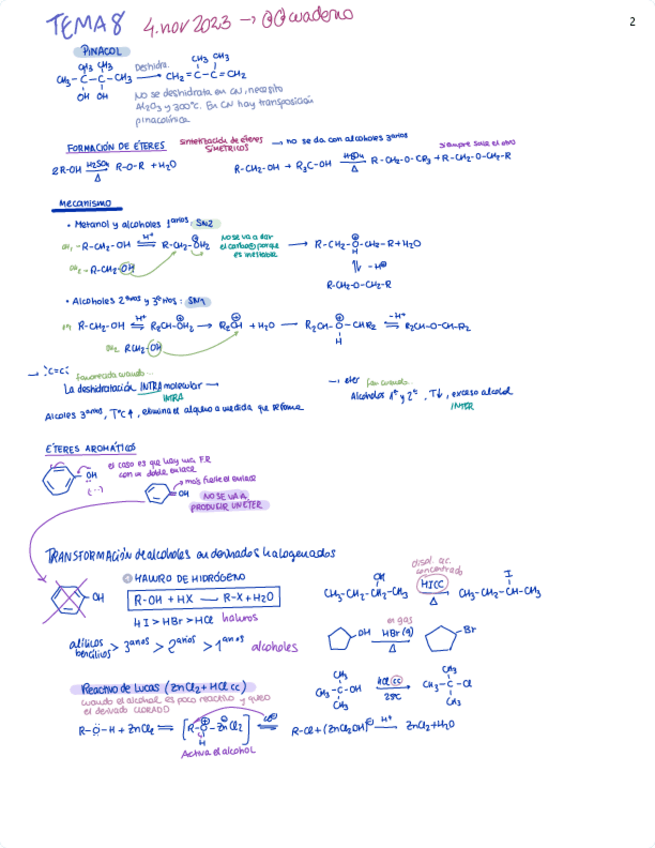 TEMA 8 4.nov 2023 → @@cuaderno
2
PINACOL
CH3 CH3
CH3-C-C-CH3
OH OH
Deshidra.
CH3 CH3
CH2=C-C=CH2
NO se deshidrata en CN, necesito
Al2O3 y 300°C. En CN hay transposición
pinacolínica
FORMACIÓN DE ÉTERES
sintetización de éteres
SIMÉTRICOS
→ no se da con alcoholes 3arios
siempre sale el otro
2R-OH H2SO4 Δ R-O-R + H2O
R-CH2-OH + R3C-OH Δ R-CH2-O-CR3 + R-CH2-O-CH2-R
Mecanismo
• Metanol y alcoholes 1arios: SN2
R-CH2-OH H+ R-CH2-OH2
NO se va a dar
el carbo⊕ porque
es inestable
→ R-CH2-O-CH2-R + H2O
H
-H⊕
R-CH2-OH
R-CH2-O-CH2-R
• Alcoholes 2arios y 3arios: SN1
R-CH2-OH H+ R2CH-OH2 → R2CH + H2O — R2CH-O-CHR2 -H+ R2CH-O-CH-R2
H
RCH2-OH
→ C=C
favorecida cuando...
La deshidratación INTRAmolecular →
INTRA
Alcoles 3arios, T°C↑, elimina el alqueno a medida que se forma
→ eter fav cuando
Alcoholes 1° y 2°, T↓, exceso alcohol
INTER
ÉTERES AROMÁTICOS
OH
el caso es que hay una F.R
con un doble enlace
(...)
→ más fuerte el enlace
OH
NO SE VA A
PRODUCIR UN ETER
TRANSFORMACIÓN de alcoholes en derivados halogenados
OH
HALURO DE HIDRÓGENO
R-OH + HX — R-X + H2O
HI > HBr > HCl haluros
alílicos
bencílicos > 3arios > 2arios > 1arios alcoholes
disol. ac.
concentrado
OH
CH3-CH2-CH2-CH3 HICC Δ CH3-CH2-CH-CH3
I
en gas
OH HBr (g) Δ Br
Reactivo de Lucas (ZnCl2 + HCl cc)
cuando el alcohol es poco reactivo y quiero
el derivado CLORADO
CH3
CH3-C-OH
CH3
HCl cc
25°C
CH3
CH3-C-Cl
CH3
R-O-H + ZnCl2 ⇌ [R-O-ZnCl2]
H
Activa el alcohol
R-Cl + (ZnCl2OH) H+ ZnCl2 + H2O